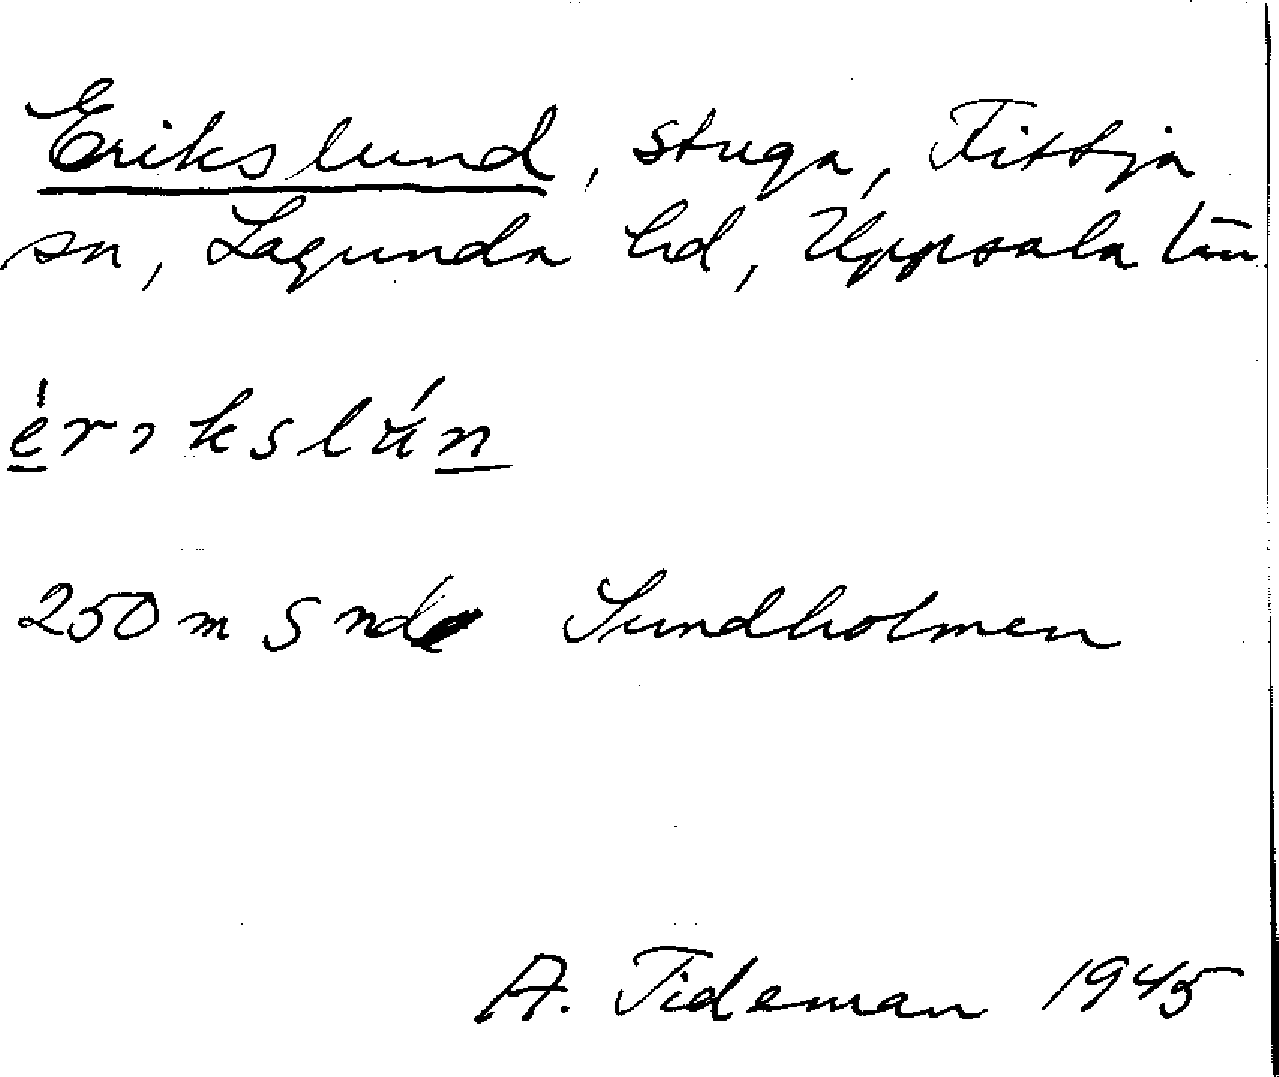 Erikslund, stuga, Fittja
sn, Lagunda hd, Uppsala län.
érikslún
250 m S nd Sundholmen
A. Tideman 1945